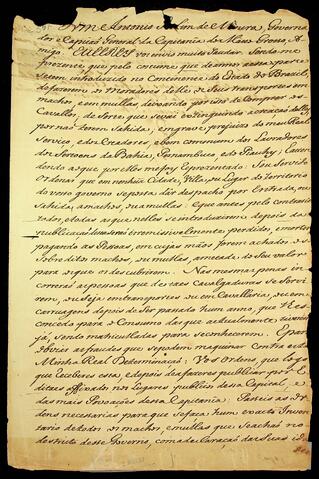 Dom Antonio Rolim de Moura, Governa
dor e Capitaõ General da Capitania do Mato Groso, A
migo. EU ELREY vos envio muito Saudar. Sendo me
prezente que pelo costume que de annos a esta parte
se tem introduzido no Continente do Estado do Brazil,
de fazerem os moradores delle os seus transportes em
machos, e em mullas, deixando por iso de comprar os
Cavallos; de sorte, que se vai extinguindo a criaçaõ delles,
por naõ terem sahida, em grave prejuizo do meu Real
Serviço, e dos Creadores, e bem commum dos Lavradores
dos Sertoens da Bahia, Pernambuco, e do Piauhy; E atten
dendo a que por elles me foy reprezentado: Sou Servido
Ordenar que em nenhũa Cidade, Villa, ou Lugar do Territorio
do voso governo se posa dar despacho por Entrada, ou
Sahida, a machos, ou mullas: E que antes pelo contrario
todos, e todas as que nelles se introduzirem depois da
publicaçaõ desta sejaõ irremisivelmente perdidos, e mortos,
pagando as Pesoas, em cujas maõs forem achados os
sobreditos machos, ou mullas, a metade do seu valor
para os que os descubrirem. Nas mesmas penas in
correraõ as pesoas que destas Cavalgaduras se Servi
rem, ou seja em transportes ou em Cavallaria, ou em
carruagens depois de ser pasado hum anno, que Hey
concedo para o Consumo das que actualmente existirem
já, sendo matriculadas para se conhecerem. E para
Obviar as fraudes que se podem maquinar contra esta
Minha Real Determinaçaõ: Vos Ordeno, que logo
que receberes esta, e depois de a fazeres publicar por E
ditaes affixados nos Lugares publicos desa Capital, e
das mais Povoações desa Capitania: Paseis as Or
dens necesarias para que se faça hum exacto Inven
tario de todos os machos, e mullas que se achaõ no
destricto dese Governo, com a declaraçaõ das suas i